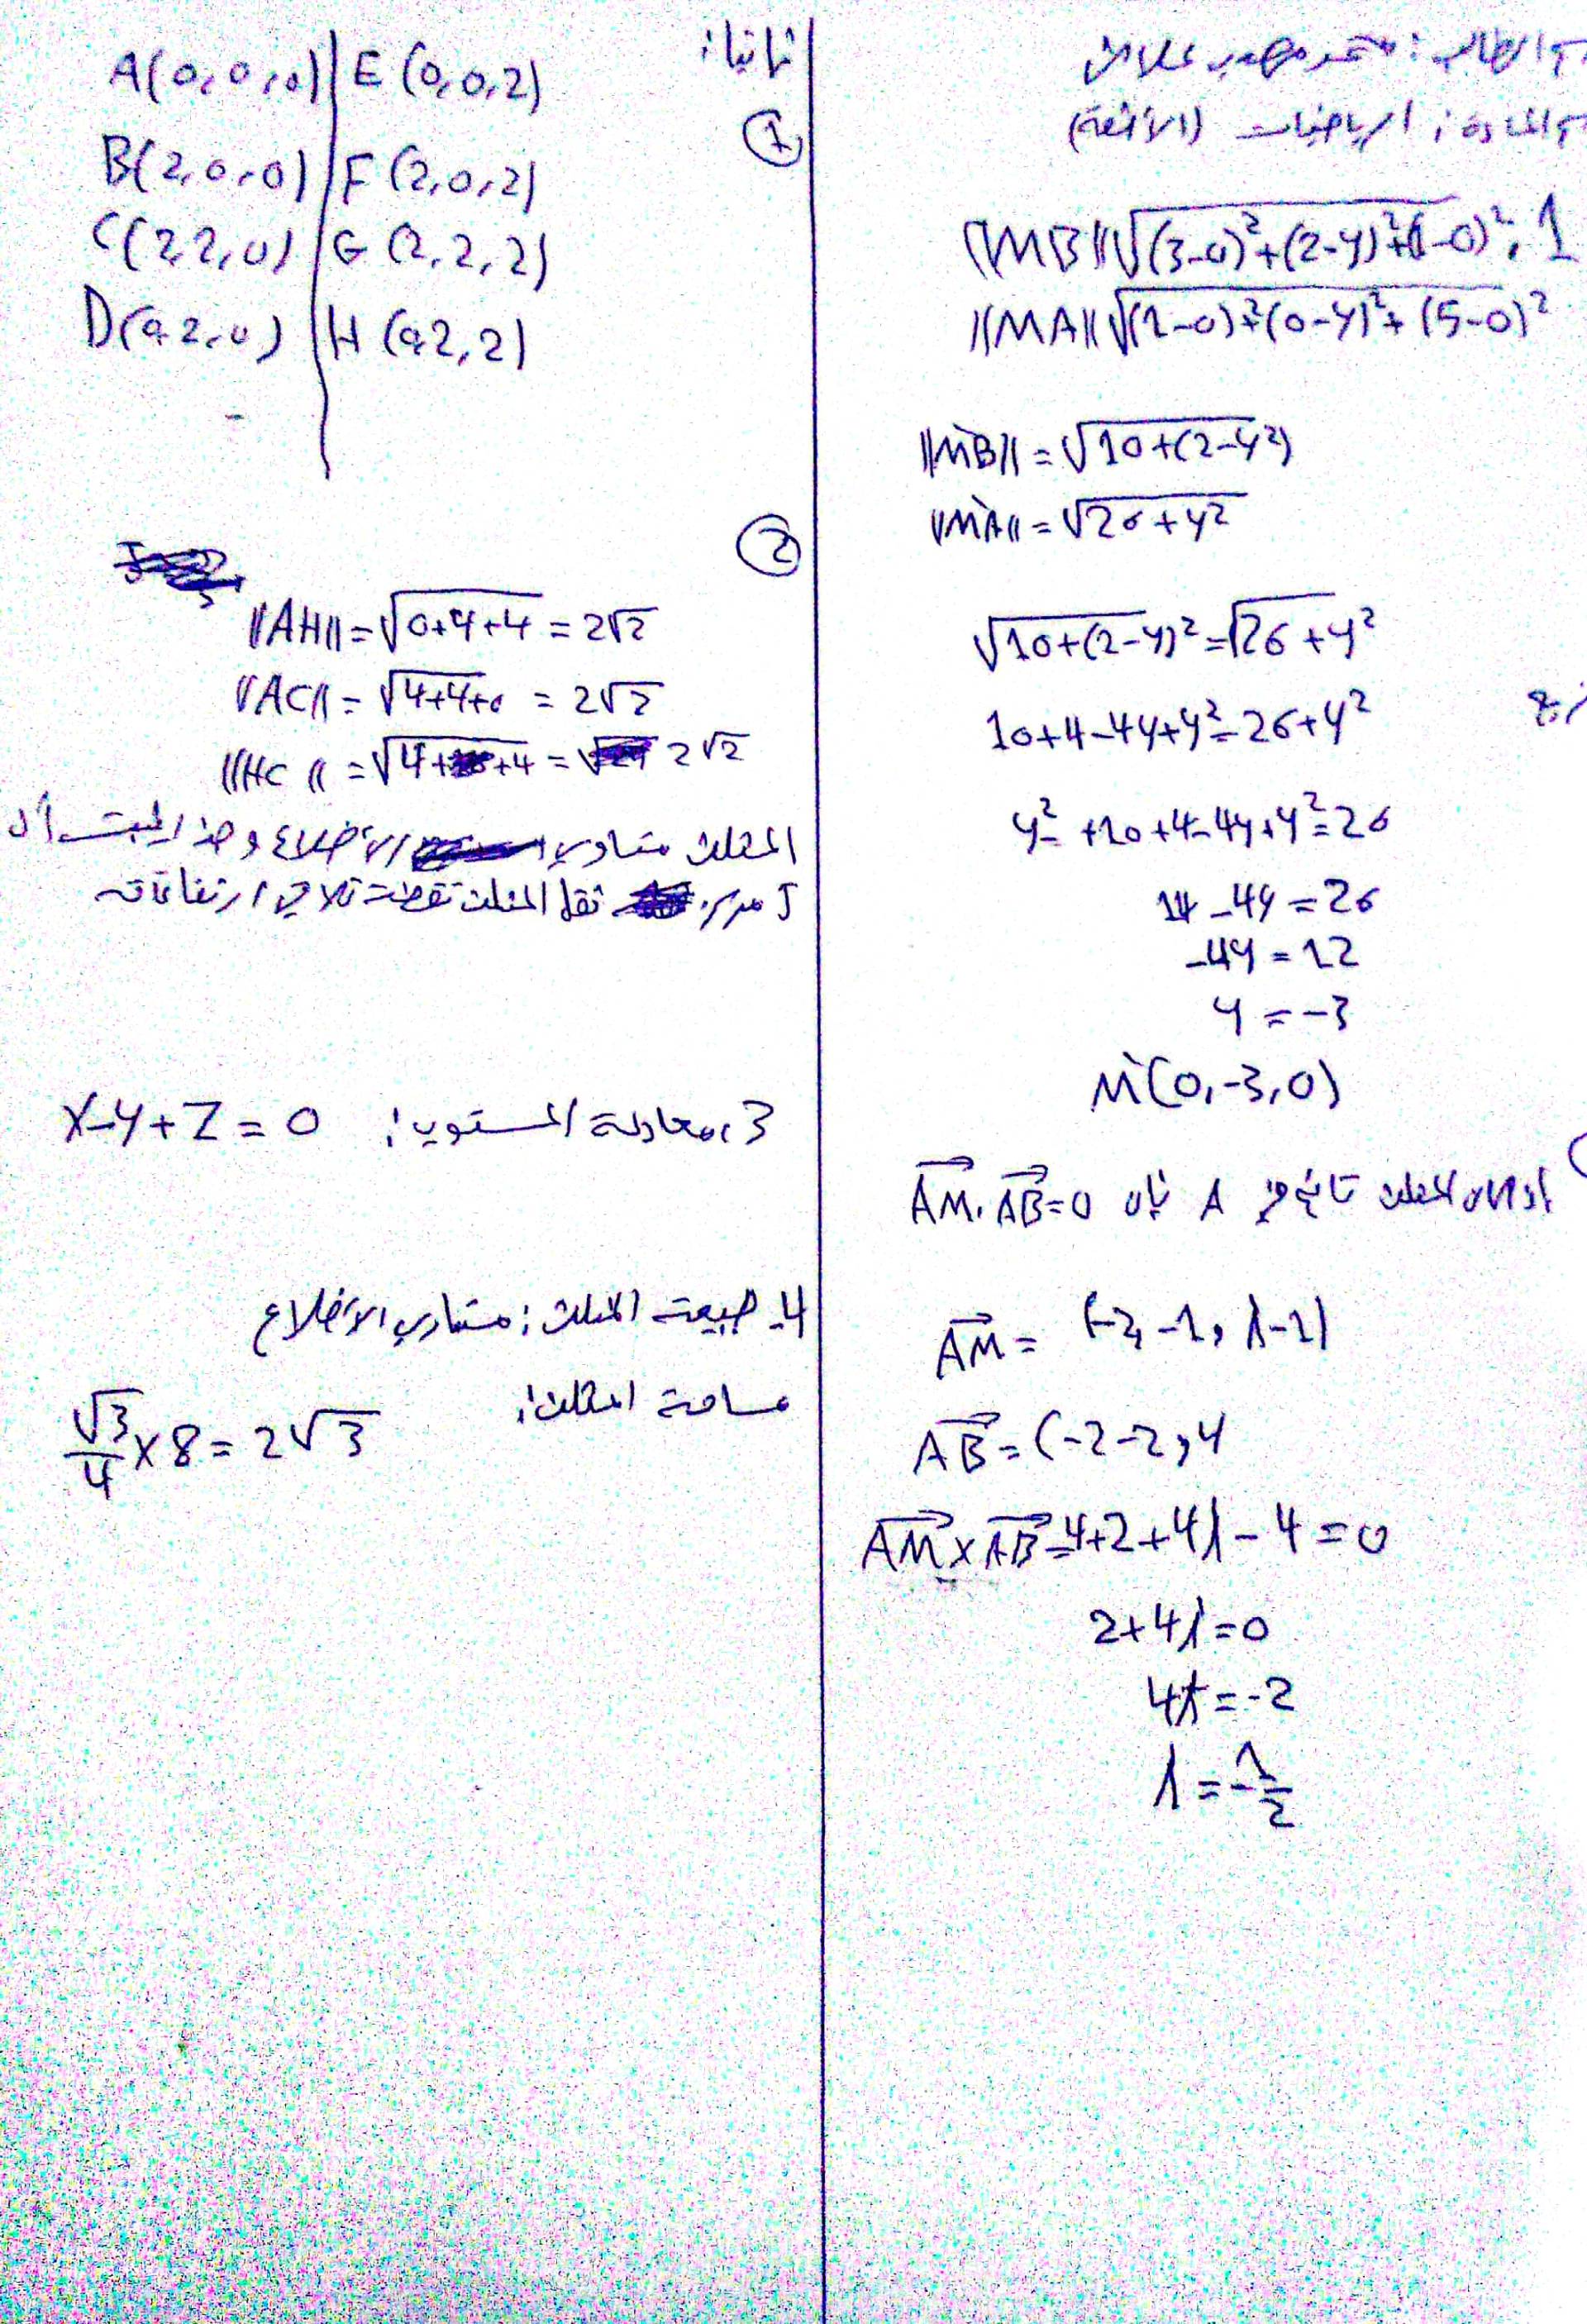 الطالب: محمد مهيب علان
المادة: الرياضيات (الأتمتة)
‖MB‖ √(3-0)²+(2-y)²+(1-0)² : 1
‖MA‖ √(1-0)²+(0-y)²+(5-0)²
‖MB‖ = √10+(2-y²)
‖MA‖ = √26+y²
√10+(2-y)² = √26+y²
10+4-4y+y² = 26+y²
y² - +10+4-4y+y² = 26
14-4y = 26
-4y = 12
y = -3
M(0,-3,0)
إذا كان المثلث قائم في A فإن AM . AB = 0
AM = (-2, -1, λ-1)
AB = (-2-2, 4
AM × AB = 4+2+4λ-4 = 0
2+4λ = 0
4λ = -2
λ = -1/2
ثانيا:
①
A(0,0,0) | E(0,0,2)
B(2,0,0) | F(2,0,2)
C(2,2,0) | G(2,2,2)
D(0,2,0) | H(0,2,2)
②
‖AH‖ = √0+4+4 = 2√2
‖AC‖ = √4+4+0 = 2√2
‖HC‖ = √4+ +4 = 2√2
المثلث متساوي الأضلاع وهذا يثبت أن
J مركز ثقل المثلث نقطة تلاقي ارتفاعاته
3، معادلة المستوي: x-y+z = 0
4- طبيعة المثلث: متساوي الأضلاع
مساحة المثلث: √3/4 × 8 = 2√3